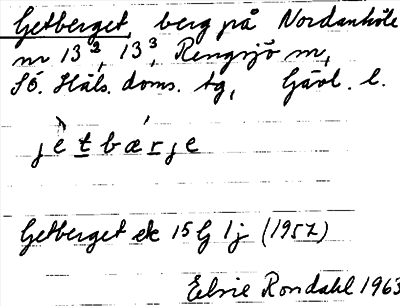 Getberget, berg på Nordanhöle
nr 13², 13³, Rengsjö sn,
Sö. Häls. doms. tg, Gävl. l.
jètbǽrje
Getberget ek 15G 1j (1957)
Elsie Rondahl 1963